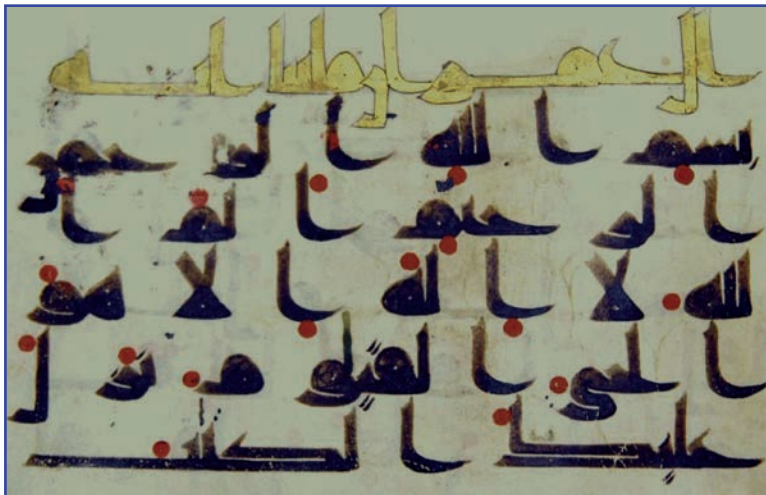 ال عمرن مايتا ايه
بسم الله الرحمن
الرحيم الم ا
لله لا اله الا هو
الحي القيوم نزل
عليك الكتب